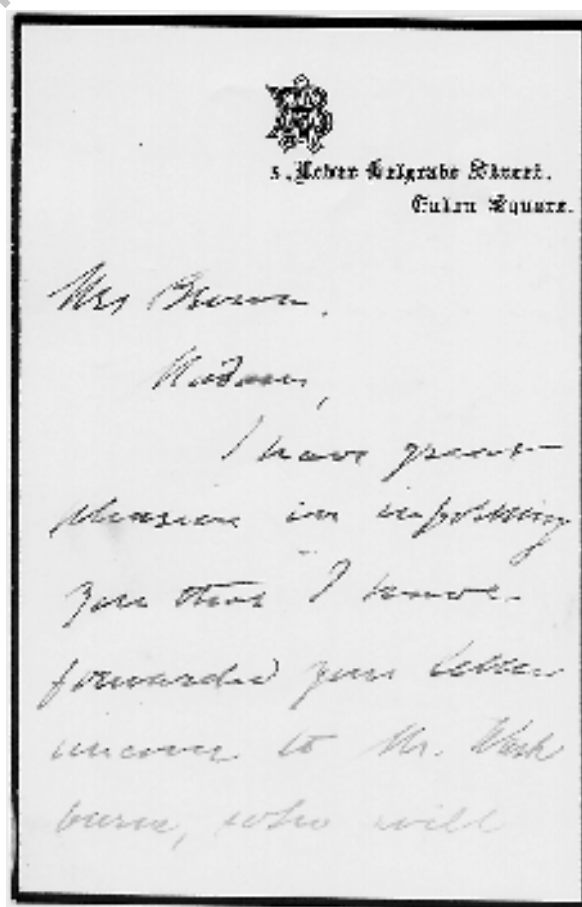 5, Lower Belgrave Street.
Eaton Square.
Mrs Brown.
Madam,
I have great
pleasure in informing
you that I have
forwarded your letter
to Mr. Wash
burne, who will